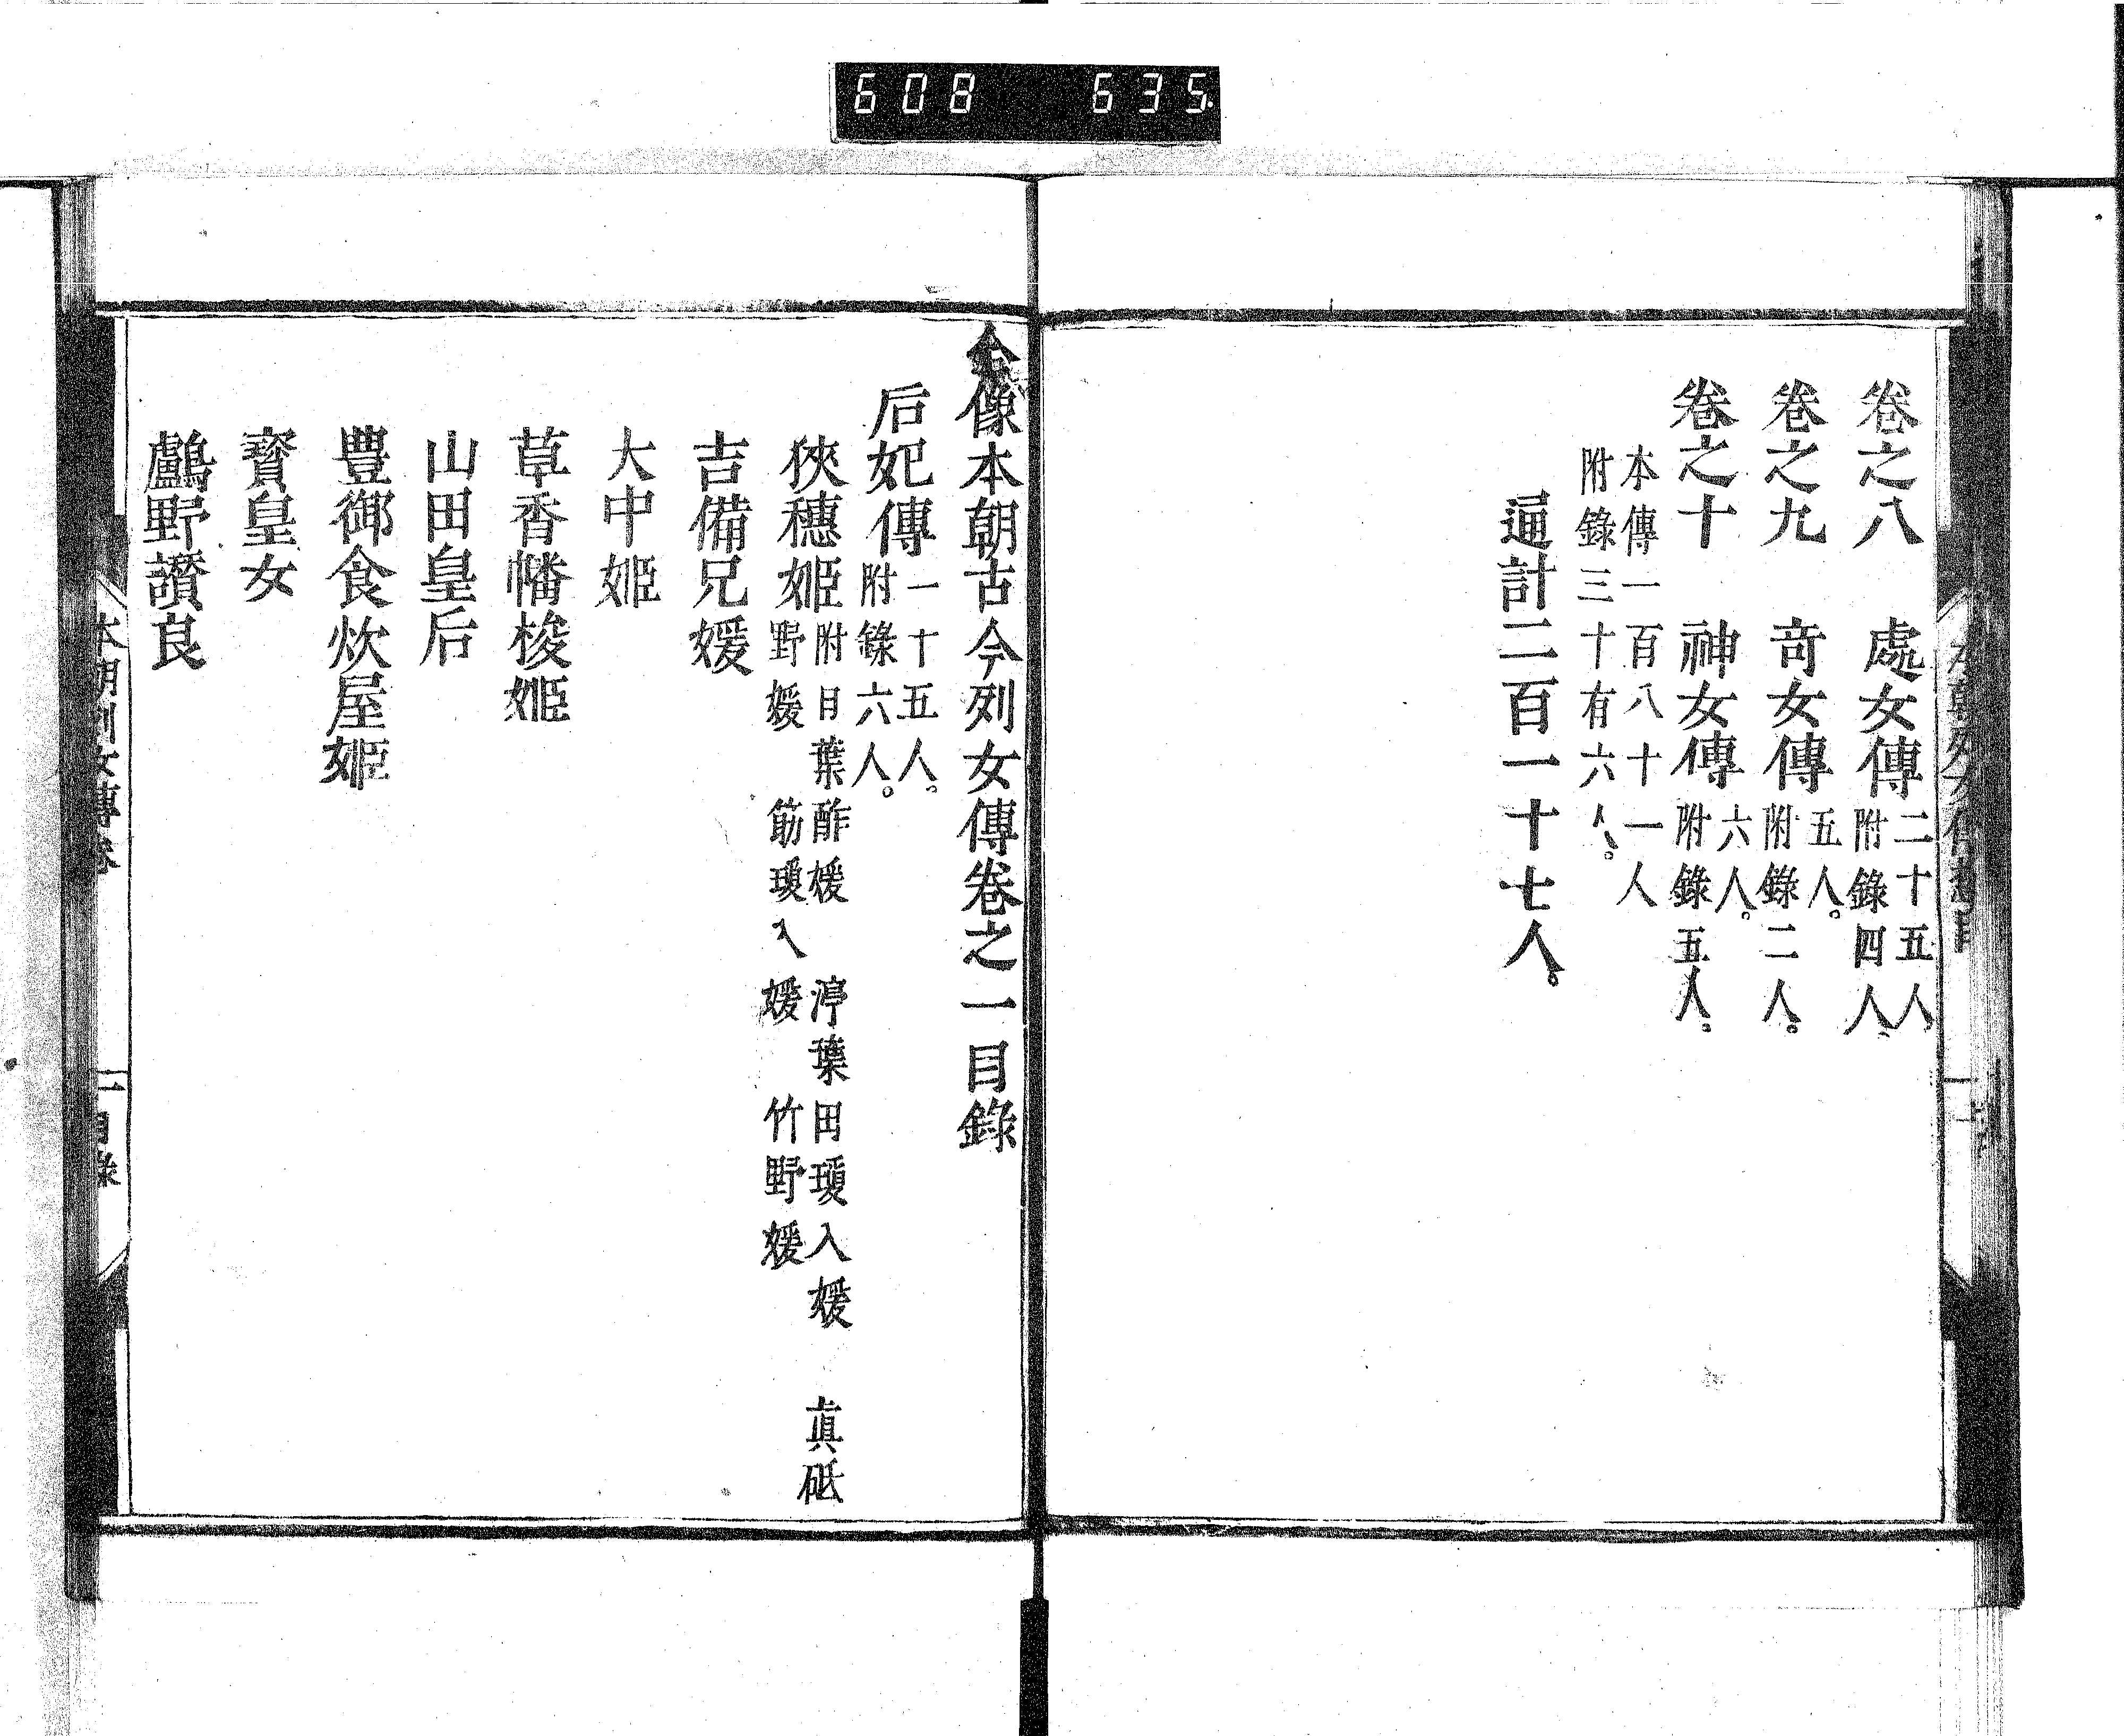 608 635
卷之八 處女傳 二十五人 附錄四人
卷之九 奇女傳 五人。附錄二人。
卷之十 神女傳 六人。附錄五人。
本傳一百八十一人
附錄三十有六人。
通計二百一十七人。
像本朝古今列女傳卷之一目錄
后妃傳 一十五人。附錄六人。
狹穗姬 附 日葉酢媛 渟葉田瓊入媛 眞砥野媛 筋瓊入媛 竹野媛
吉備兄媛
大中姬
草香幡梭姬
山田皇后
豊御食炊屋姬
寳皇女
鸕野讃良
本朝列女傳卷
一目錄